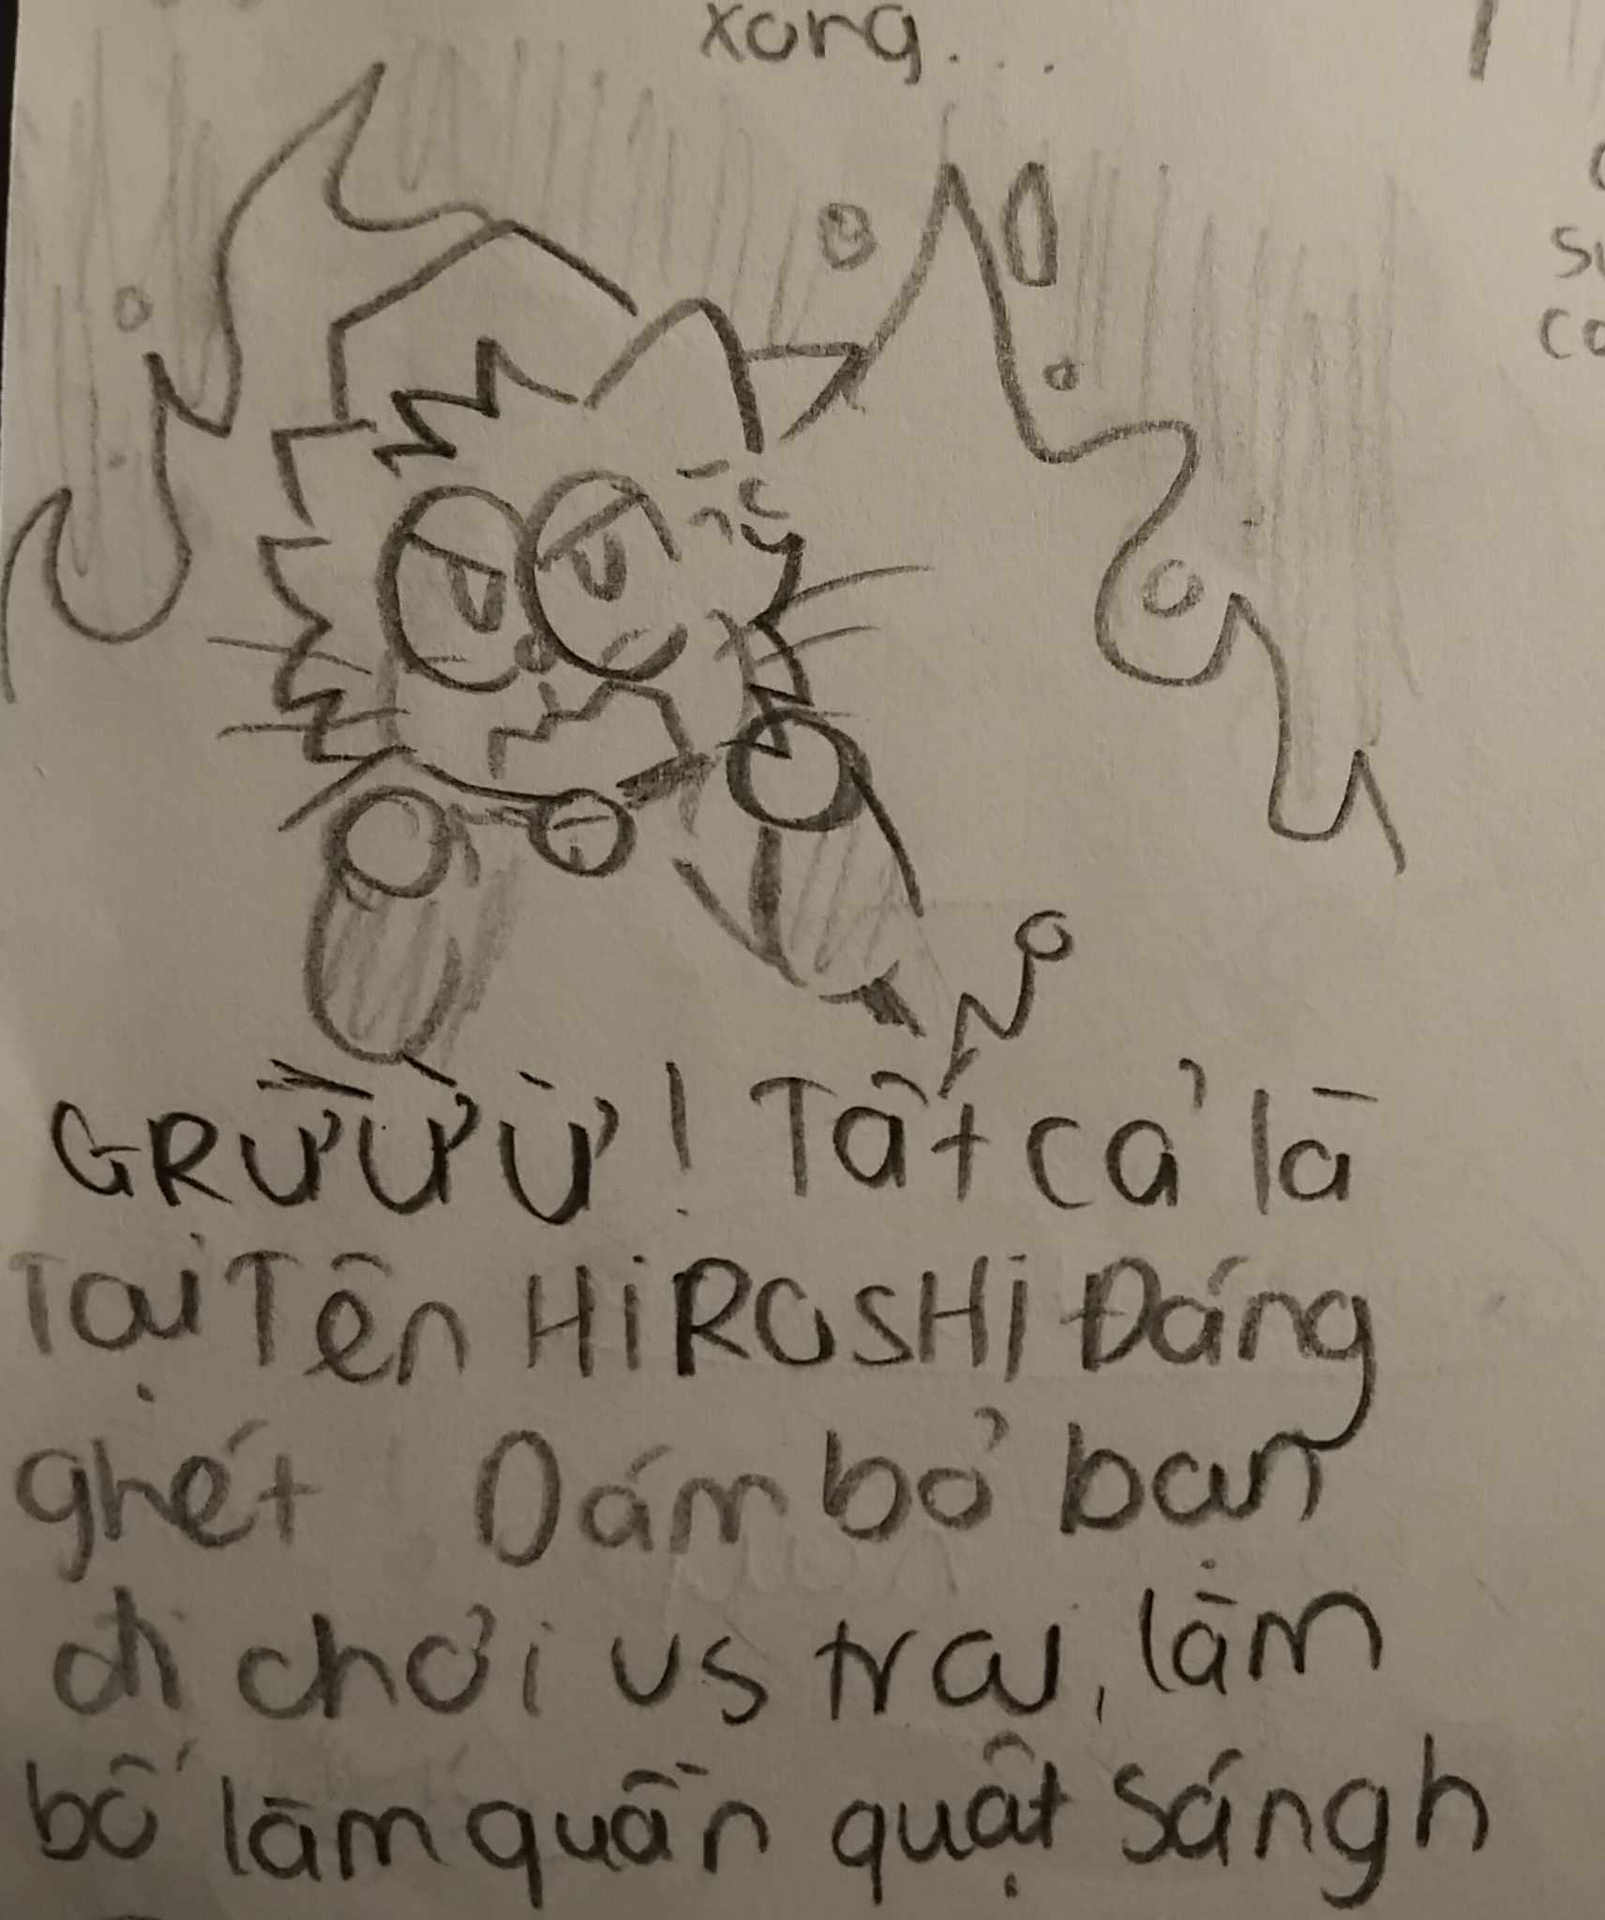 xong...
GRỪỪỪ! Tất cả là
Tại Tên HiROSHi Đáng
ghét Dám bỏ bạn
đi chơi vs trai, làm
bố làm quần quật sángh